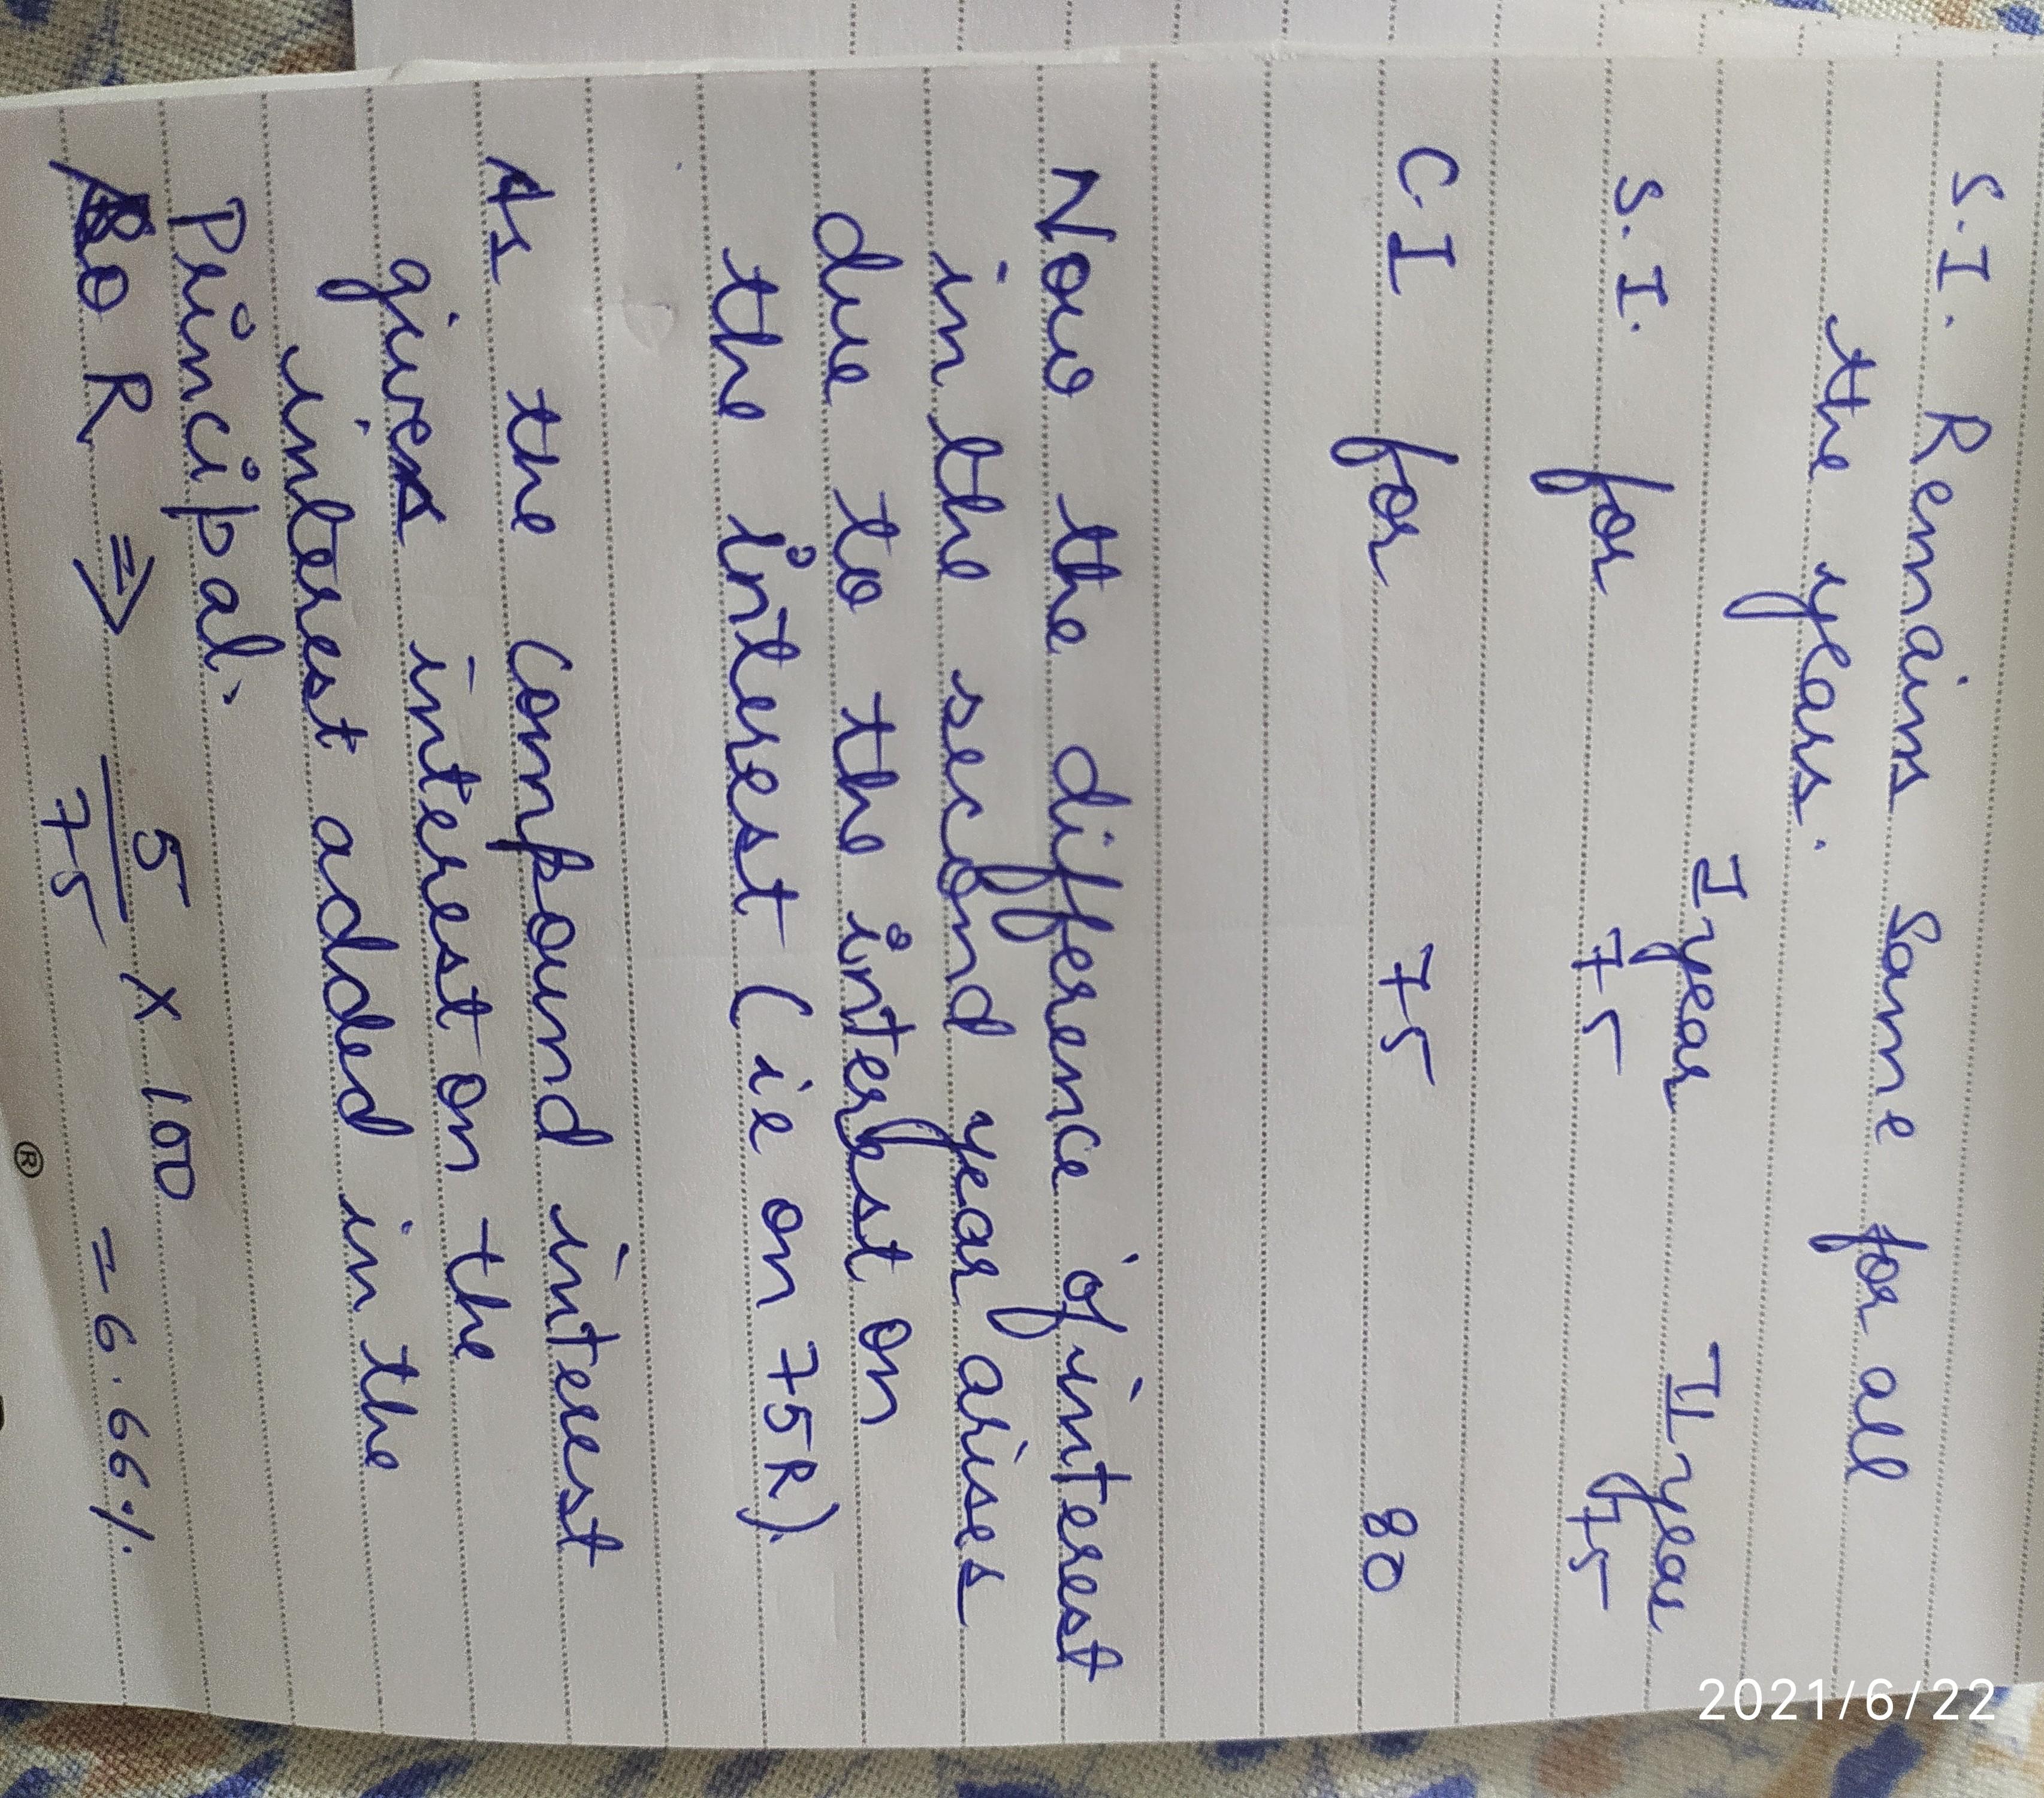 S.I. Remains Same for all
the years.
I year II year
S.I. for 75 75
C.I for 75 80
Now the difference of interest
in the second year arises
due to the interest on
the interest (ie on 75R).
As the compound interest
gives interest on the
interest added in the
Principal.
So R ⇒ 5/75 × 100 = 6.66%
®
2021/6/22